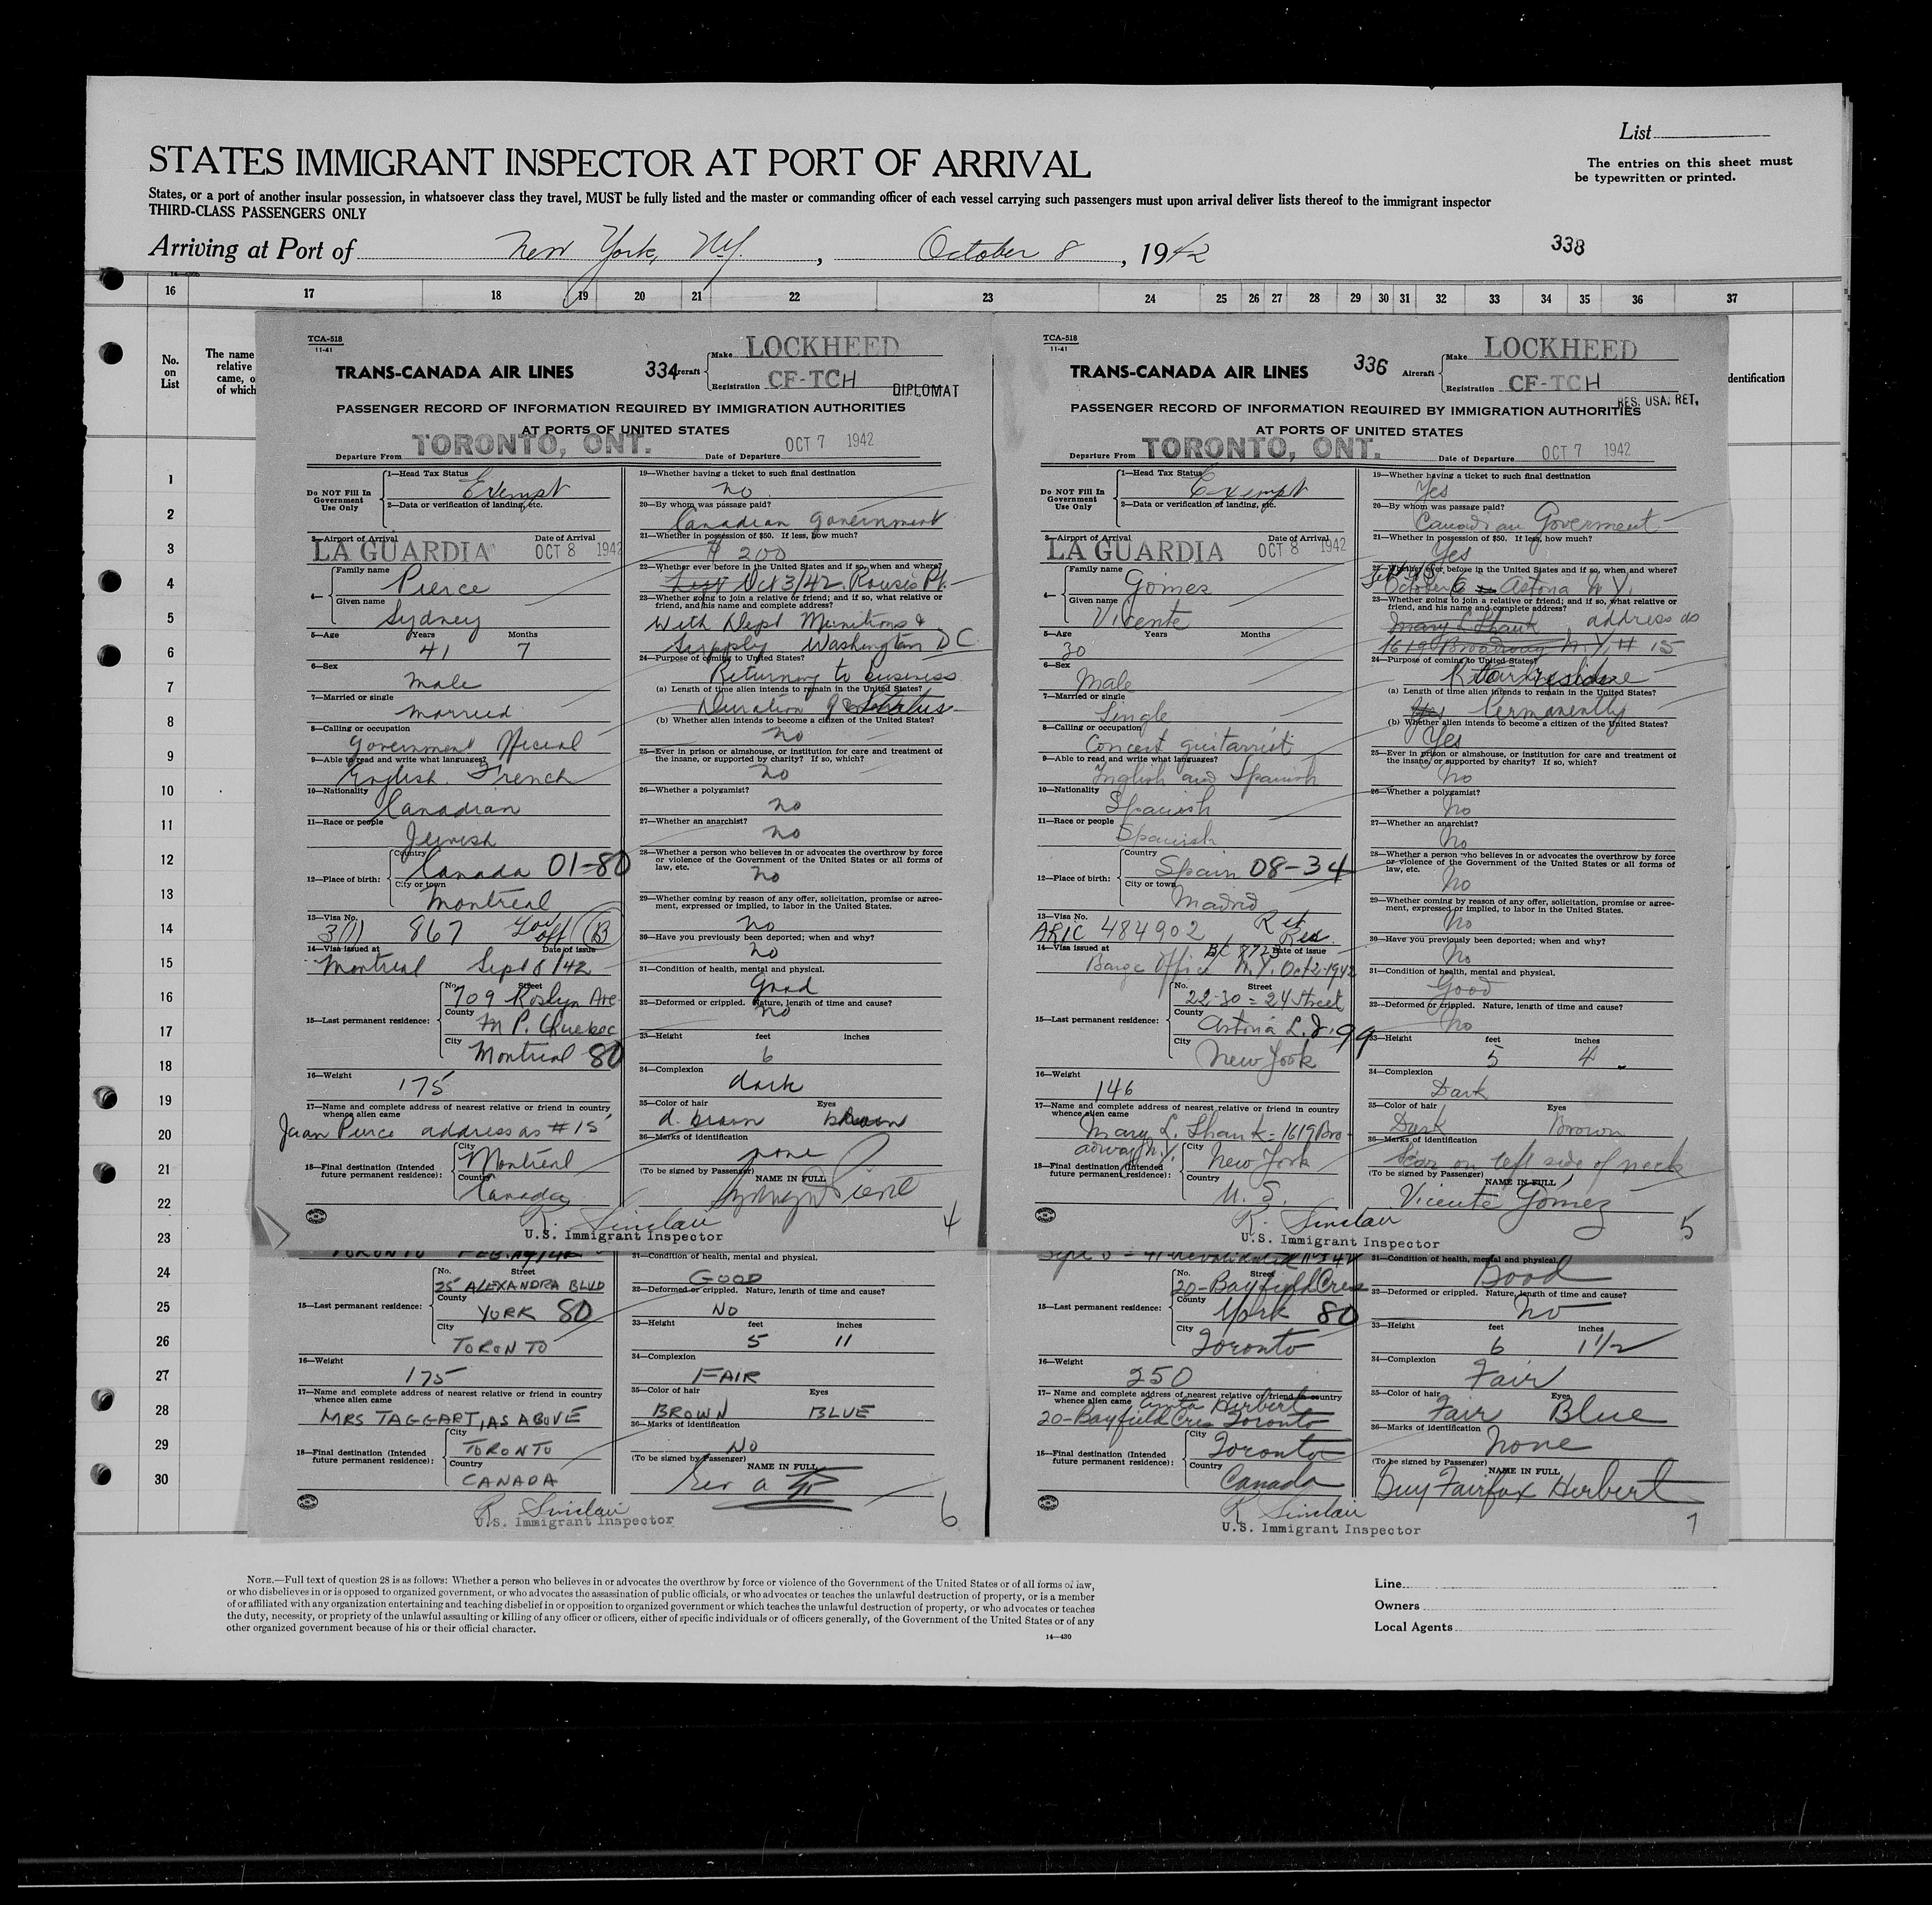 List
STATES IMMIGRANT INSPECTOR AT PORT OF ARRIVAL
The entries on this sheet must
be typewritten or printed.
States, or a port of another insular possession, in whatsoever class they travel, MUST be fully listed and the master or commanding officer of each vessel carrying such passengers must upon arrival deliver lists thereof to the immigrant inspector
THIRD-CLASS PASSENGERS ONLY
Arriving at Port of New York, N.Y., October 8, 1942
338
16 17 18 19 20 21 22 23 24 25 26 27 28 29 30 31 32 33 34 35 36 37
No.
on
List
The name
relative
came, o
of which
dentification
1
2
3
4
5
6
7
8
9
10
11
12
13
14
15
16
17
18
19
20
21
22
23
24
25
26
27
28
29
30
TCA-518
11-41
TRANS-CANADA AIR LINES
334
rcraft
Make LOCKHEED
Registration CF-TCH
DIPLOMAT
PASSENGER RECORD OF INFORMATION REQUIRED BY IMMIGRATION AUTHORITIES
AT PORTS OF UNITED STATES
Departure From TORONTO, ONT. Date of Departure OCT 7 1942
Do NOT Fill In
Government
Use Only
1—Head Tax Status
Exempt
2—Data or verification of landing, etc.
3—Airport of Arrival Date of Arrival
LA GUARDIA OCT 8 1942
4—
Family name
Pierce
Given name
Sydney
5—Age Years Months
41 7
6—Sex
Male
7—Married or single
Married
8—Calling or occupation
Government Official
9—Able to read and write what languages?
English French
10—Nationality
Canadian
11—Race or people
Jewish
12—Place of birth:
Country
Canada 01-80
City or town
Montreal
13—Visa No.
3(1) 867 Gov Off B
14—Visa issued at Date of issue
Montreal Sept 8/42
15—Last permanent residence:
No. Street
709 Roslyn Ave
County
M P. Quebec
City
Montreal 80
16—Weight
175
17—Name and complete address of nearest relative or friend in country
whence alien came
Jean Pierce address as # 15
18—Final destination (Intended
future permanent residence):
City
Montreal
Country
Canada
19—Whether having a ticket to such final destination
no
20—By whom was passage paid?
Canadian Government
21—Whether in possession of $50. If less, how much?
$ 200
22—Whether ever before in the United States and if so, when and where?
Oct 3/42 Rouses Pt.
23—Whether going to join a relative or friend; and if so, what relative or
friend, and his name and complete address?
With Dept Munitions &
Supply Washington D C
24—Purpose of coming to United States?
Returning to business
(a) Length of time alien intends to remain in the United States?
Duration of Status
(b) Whether alien intends to become a citizen of the United States?
no
25—Ever in prison or almshouse, or institution for care and treatment of
the insane, or supported by charity? If so, which?
no
26—Whether a polygamist?
no
27—Whether an anarchist?
no
28—Whether a person who believes in or advocates the overthrow by force
or violence of the Government of the United States or all forms of
law, etc.
no
29—Whether coming by reason of any offer, solicitation, promise or agree-
ment, expressed or implied, to labor in the United States.
no
30—Have you previously been deported; when and why?
no
31—Condition of health, mental and physical.
Good
32—Deformed or crippled. Nature, length of time and cause?
no
33—Height feet inches
6
34—Complexion
dark
35—Color of hair Eyes
d. brown brown
36—Marks of identification
none
(To be signed by Passenger)
NAME IN FULL
Sydney D Pierce
R. Sinclair
U.S. Immigrant Inspector
4
TCA-518
11-41
TRANS-CANADA AIR LINES
336
Aircraft
Make LOCKHEED
Registration CF-TCH
RES. USA. RET.
PASSENGER RECORD OF INFORMATION REQUIRED BY IMMIGRATION AUTHORITIES
AT PORTS OF UNITED STATES
Departure From TORONTO, ONT. Date of Departure OCT 7 1942
Do NOT Fill In
Government
Use Only
1—Head Tax Status
Exempt
2—Data or verification of landing, etc.
3—Airport of Arrival Date of Arrival
LA GUARDIA OCT 8 1942
4—
Family name
Gomez
Given name
Vicente
5—Age Years Months
30
6—Sex
Male
7—Married or single
Single
8—Calling or occupation
Concert guitarrist
9—Able to read and write what languages?
Inglish and Spanish
10—Nationality
Spanish
11—Race or people
Spanish
12—Place of birth:
Country
Spain 08-34
City or town
Madrid
13—Visa No.
ARIC 484902 Ret Res.
14—Visa issued at Date of issue
Barge Office N.Y. Oct 2-1942
15—Last permanent residence:
No. Street
22-30 = 24 Street
County
Astoria L.I. 99
City
New York
16—Weight
146
17—Name and complete address of nearest relative or friend in country
whence alien came
Mary L. Shank = 1619 Bro-
adway N.Y.
18—Final destination (Intended
future permanent residence):
City
New York
Country
U. S.
19—Whether having a ticket to such final destination
Yes
20—By whom was passage paid?
Canadian Goverment
21—Whether in possession of $50. If less, how much?
Yes
22—Whether ever before in the United States and if so, when and where?
October 6 Astoria N.Y.
23—Whether going to join a relative or friend; and if so, what relative or
friend, and his name and complete address?
Mary L Shank address as
1619 Broadway N.Y. # 15
24—Purpose of coming to United States?
(a) Length of time alien intends to remain in the United States?
Permanently
(b) Whether alien intends to become a citizen of the United States?
Yes
25—Ever in prison or almshouse, or institution for care and treatment of
the insane, or supported by charity? If so, which?
No
26—Whether a polygamist?
No
27—Whether an anarchist?
No
28—Whether a person who believes in or advocates the overthrow by force
or violence of the Government of the United States or all forms of
law, etc.
No
29—Whether coming by reason of any offer, solicitation, promise or agree-
ment, expressed or implied, to labor in the United States.
No
30—Have you previously been deported; when and why?
No
31—Condition of health, mental and physical.
Good
32—Deformed or crippled. Nature, length of time and cause?
No
33—Height feet inches
5 4
34—Complexion
Dark
35—Color of hair Eyes
Dark Brown
36—Marks of identification
Scar on left side of neck
(To be signed by Passenger)
NAME IN FULL
Vicente Gómez
R. Sinclair
U.S. Immigrant Inspector
5
15—Last permanent residence:
No. Street
25 ALEXANDRA BLVD
County
YORK 80
City
TORONTO
16—Weight
175
17—Name and complete address of nearest relative or friend in country
whence alien came
MRS TAGGART, AS ABOVE
18—Final destination (Intended
future permanent residence):
City
TORONTO
Country
CANADA
31—Condition of health, mental and physical.
GOOD
32—Deformed or crippled. Nature, length of time and cause?
NO
33—Height feet inches
5 11
34—Complexion
FAIR
35—Color of hair Eyes
BROWN BLUE
36—Marks of identification
NO
(To be signed by Passenger)
NAME IN FULL
R Sinclair
U.S. Immigrant Inspector
6
15—Last permanent residence:
No. Street
20-Bayfield Cres
County
York 80
City
Toronto
16—Weight
250
17—Name and complete address of nearest relative or friend in country
whence alien came Anita Herbert
20-Bayfield Cres Toronto
18—Final destination (Intended
future permanent residence):
City
Toronto
Country
Canada
31—Condition of health, mental and physical
Good
32—Deformed or crippled. Nature, length of time and cause?
No
33—Height feet inches
6 1 1/2
34—Complexion
Fair
35—Color of hair Eyes
Fair Blue
36—Marks of identification
none
(To be signed by Passenger)
NAME IN FULL
Guy Fairfax Herbert
R Sinclair
U.S. Immigrant Inspector
7
NOTE.—Full text of question 28 is as follows: Whether a person who believes in or advocates the overthrow by force or violence of the Government of the United States or of all forms of law,
or who disbelieves in or is opposed to organized government, or who advocates the assassination of public officials, or who advocates or teaches the unlawful destruction of property, or is a member
of or affiliated with any organization entertaining and teaching disbelief in or opposition to organized government or which teaches the unlawful destruction of property, or who advocates or teaches
the duty, necessity, or propriety of the unlawful assaulting or killing of any officer or officers, either of specific individuals or of officers generally, of the Government of the United States or of any
other organized government because of his or their official character.
14—430
Line
Owners
Local Agents